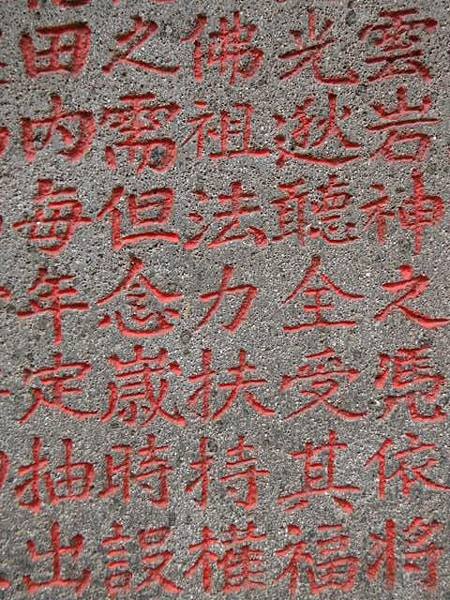 雲岩神之憑依將
光逖聽全受其福
佛祖法力扶持權
之需但念歲時設
田内每年定抽出